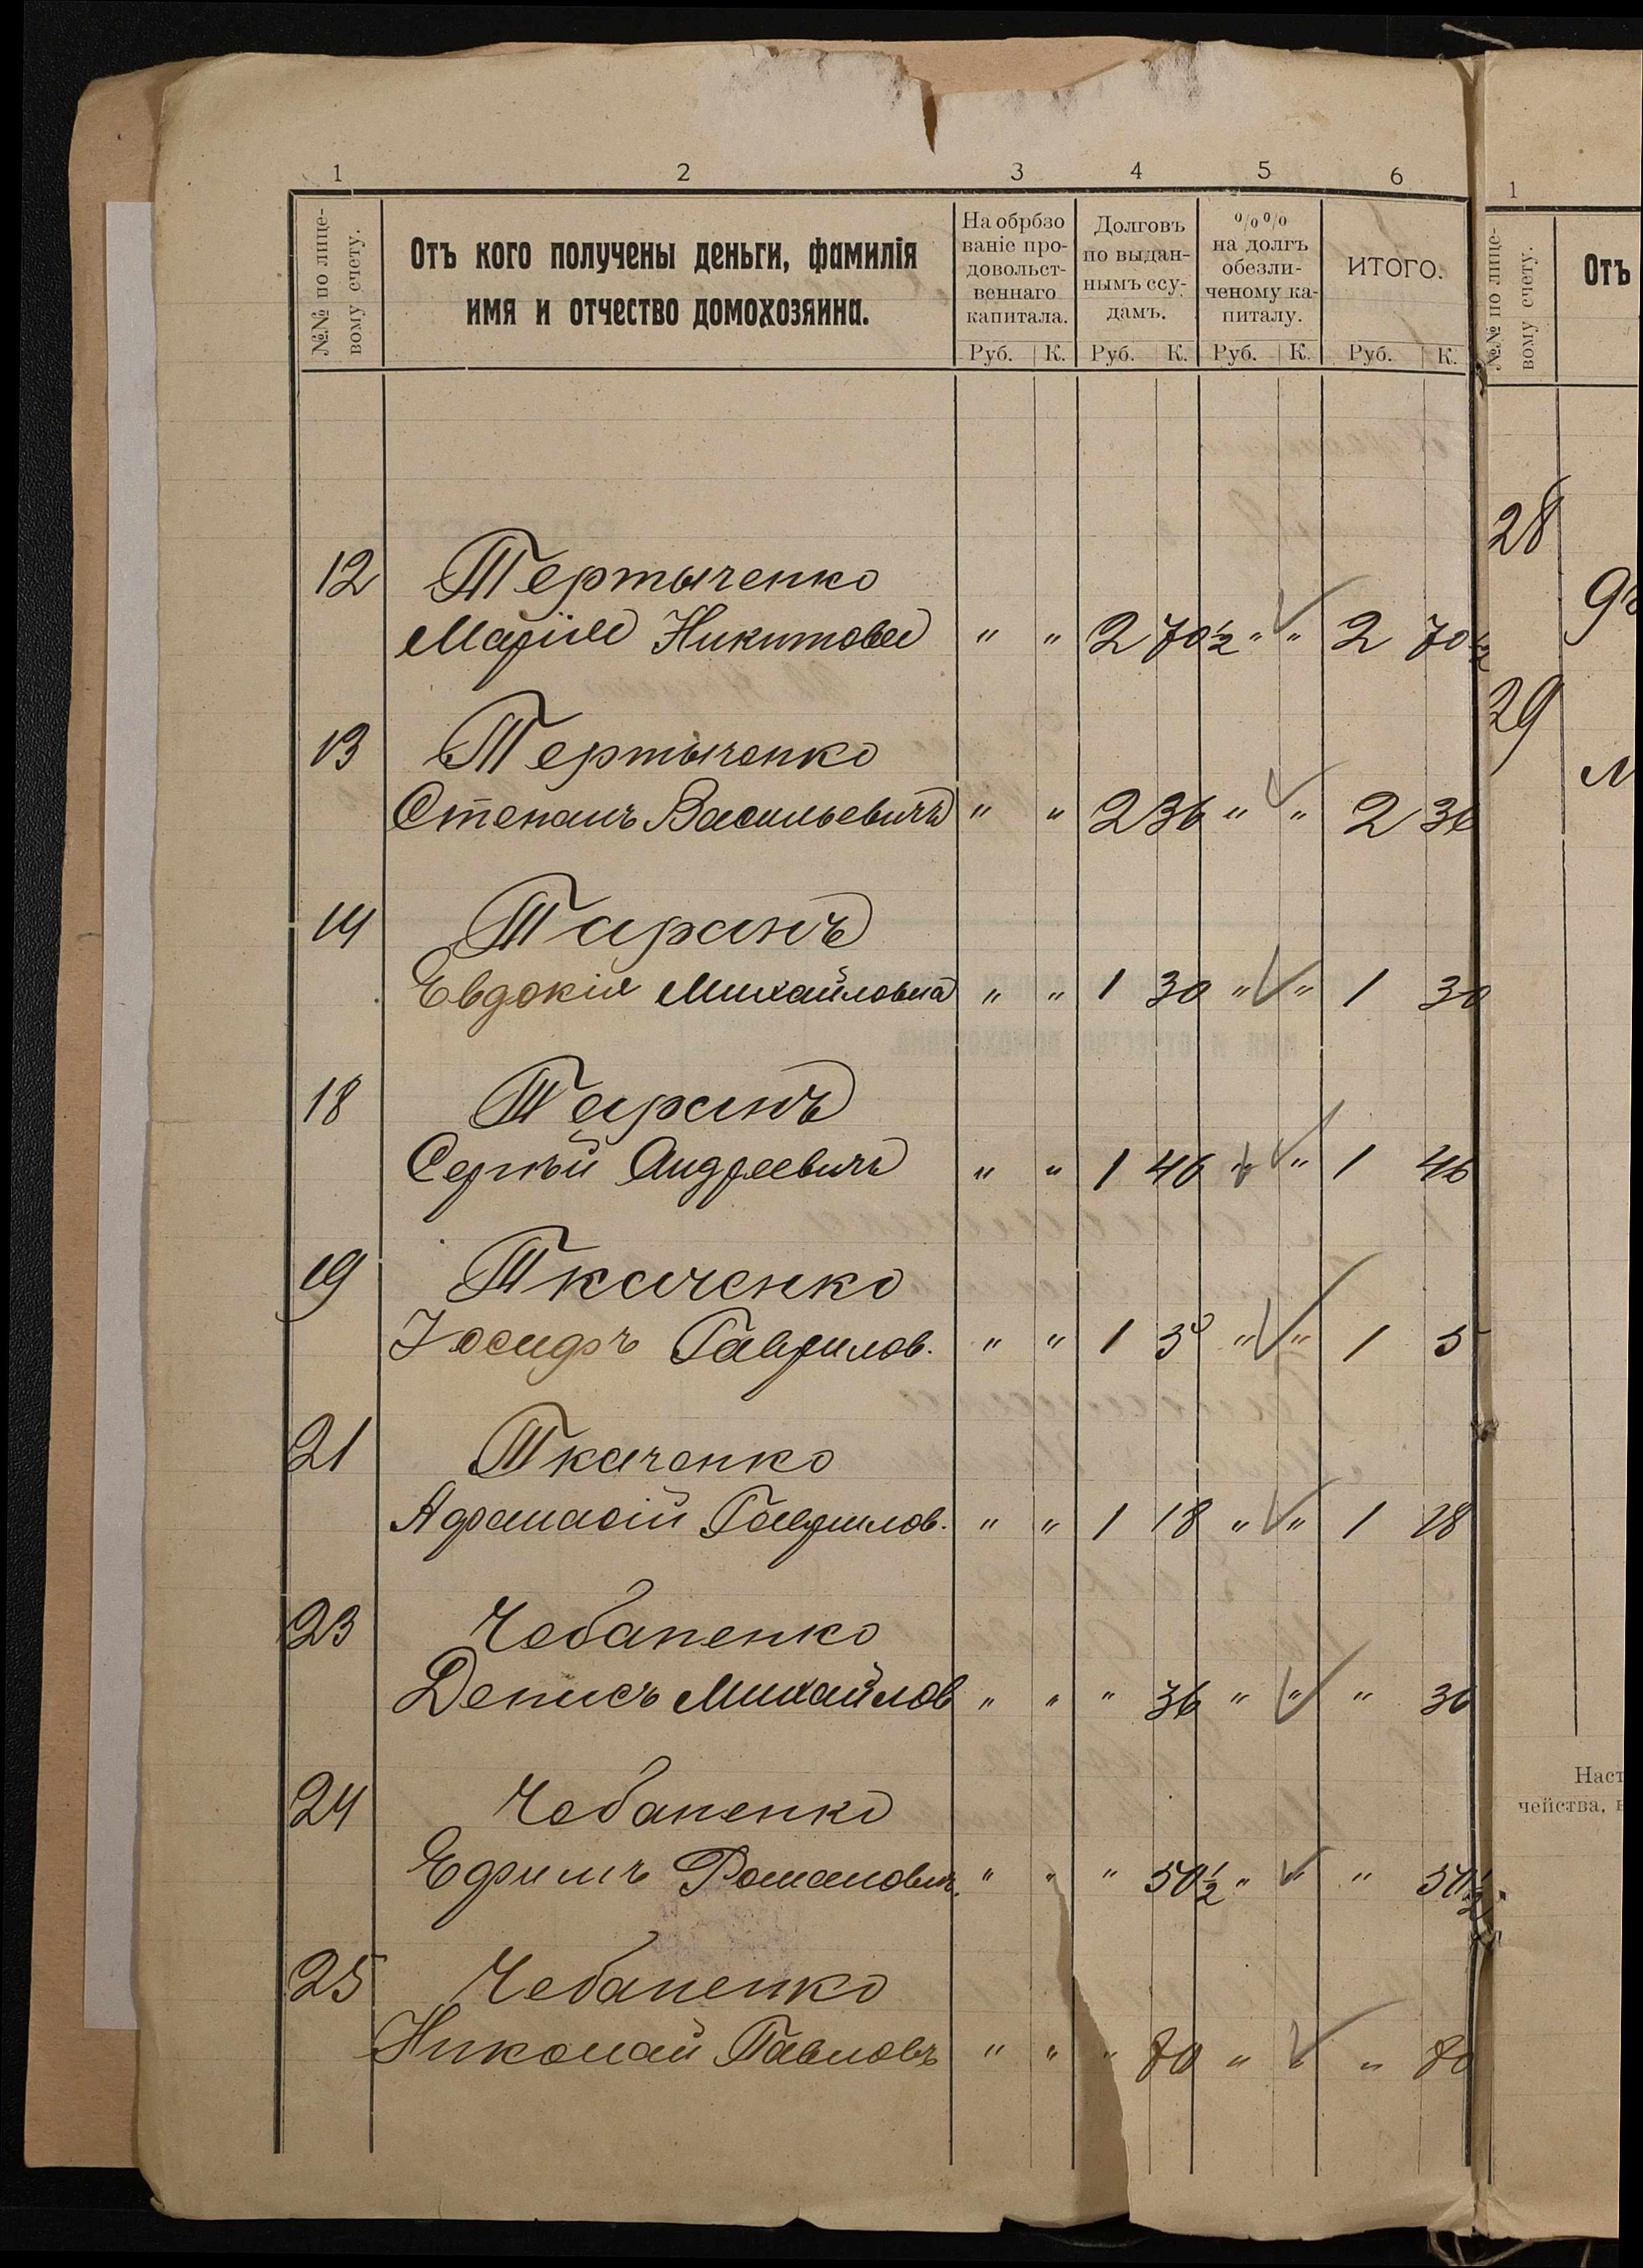 1 2 3 4 5 6
№№ по лице-
вому счету.
Отъ кого получены деньги, фамилія
имя и отчество домохозяина.
На обрбзо
ваніе про-
довольст-
веннаго
капитала.
Долговъ
по выдан-
нымъ ссу-
дамъ.
%%
на долгъ
обезли-
ченому ка-
питалу.
ИТОГО.
Руб. К. Руб. К. Руб. К. Руб. К.
12 Тертыченко
Марія Никитова " " 2 70½ " " 2 70½
13 Тертыченко
Степанъ Васильевичъ " " 2 36 " " 2 36
14 Таранъ
Евдокія Михайловна " " 1 30 " " 1 30
18 Таранъ
Сергѣй Андреевичъ " " 1 46 " " 1 46
19 Ткаченко
Іосифъ Гаврилов. " " 1 5 " " 1 5
21 Ткаченко
Афанасій Гаврилов. " " 1 18 " " 1 18
23 Чебаненко
Денисъ Михайлов " " " 36 " " " 36
24 Чебаненко
Ефимъ Романович. " " " 50½ " " " 50½
25 Чебаненко
Николай Павловъ " " " 80 " " " 80
1
№№ по лице-
вому счету.
Отъ
28
29
Наст
чейства, в